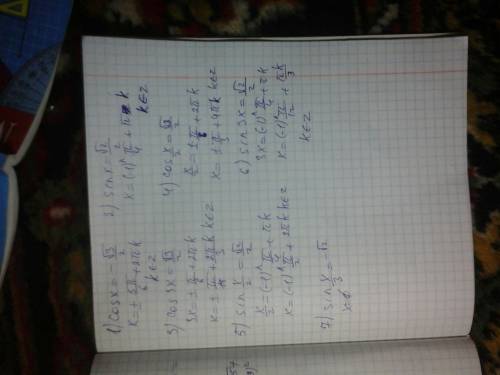 1) cosx = -√3/2
x = ± 5π/6 + 2πk
k∈z
2) sinx = √2/2
x = (-1)^k π/4 + πk
k∈z
3) cos3x = √3/2
3x = ± π/6 + 2πk
k∈z
4) cos x/2 = √3/2
x/2 = ± π/6 + 2πk
x = ± π/3 + 4πk k∈z
5) sin x/2 = √2/2
x/2 = (-1)^k π/4 + πk
x = (-1)^k π/2 + 2πk k∈z
6) sin3x = √2/2
3x = (-1)^k π/4 + πk
x = (-1)^k π/12 + πk/3
k∈z
7) sin x/3 = -√2